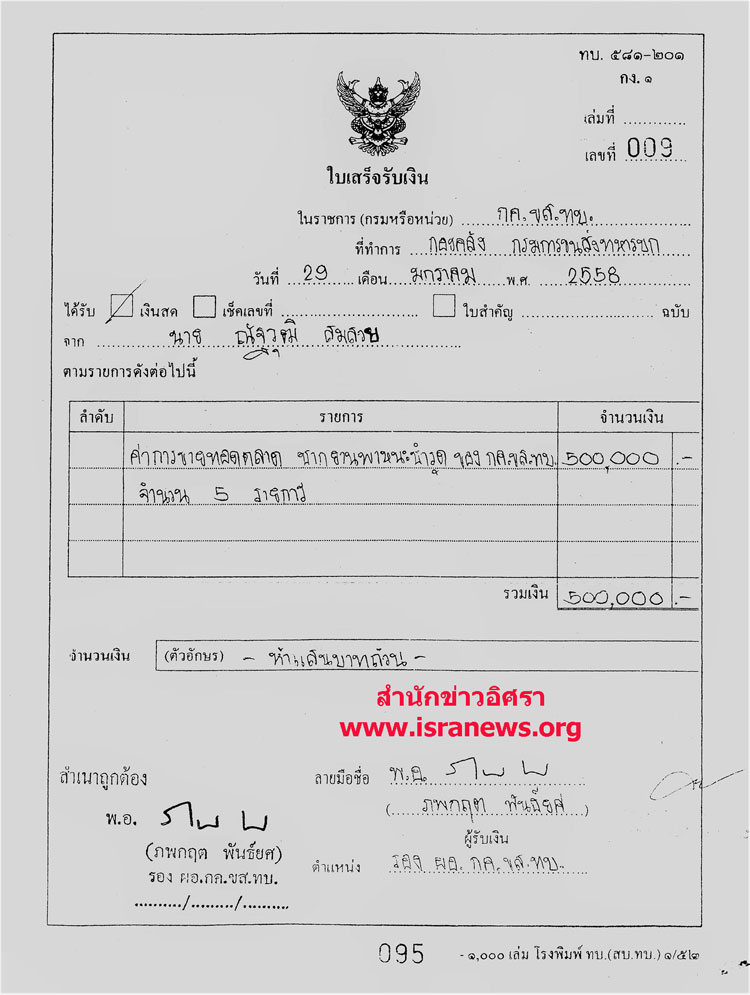 ทบ. ๕๘๑-๒๐๑
กง. ๑
เล่มที่ ..............
เลขที่ 009
ใบเสร็จรับเงิน
ในราชการ (กรมหรือหน่วย) กค.ขส.ทบ.
ที่ทำการ กองคลัง กรมการขนส่งทหารบก
วันที่ 29 เดือน มกราคม พ.ศ. 2558
ได้รับ เงินสด เช็คเลขที่ .............................. ใบสำคัญ .............................. ฉบับ
จาก นาย ณัฐวุฒิ สมสวย
ตามรายการดังต่อไปนี้
ลำดับ รายการ จำนวนเงิน
ค่าการขายทอดตลาด ซากยานพาหนะชำรุด ของ กค.ขส.ทบ. 500,000 .-
จำนวน 5 รายการ
รวมเงิน 500,000 .-
จำนวนเงิน (ตัวอักษร) - ห้าแสนบาทถ้วน -
สำนักข่าวอิศรา
www.isranews.org
สำเนาถูกต้อง
ลายมือชื่อ พ.อ.
พ.อ.
(ภพกฤต พันธ์ยศ)
(ภพกฤต พันธ์ยศ)
ผู้รับเงิน
รอง ผอ.กค.ขส.ทบ.
ตำแหน่ง รอง ผอ. กค.ขส.ทบ.
........../........./..........
095 - ๑,๐๐๐ เล่ม โรงพิมพ์ ทบ.(สบ.ทบ.) ๑/๕๒